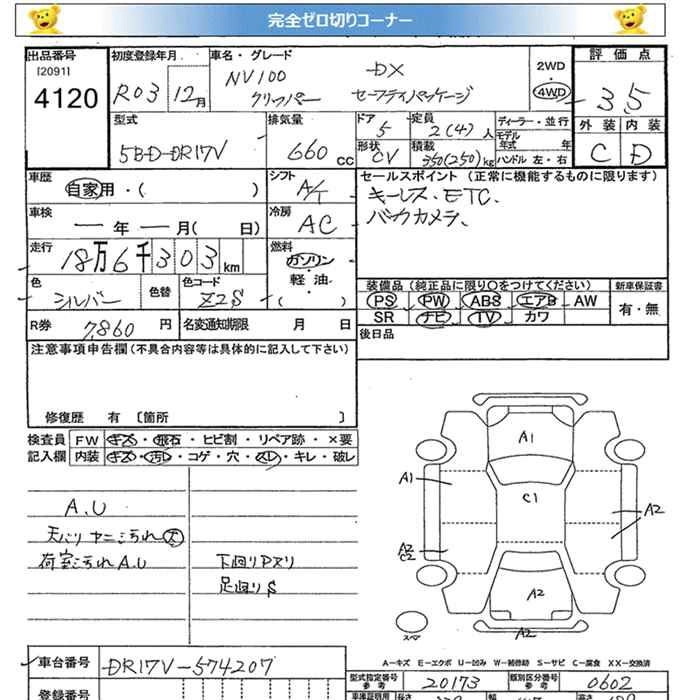 完全ゼロ切りコーナー
出品番号 初度登録年月 車名・グレード 2WD 評価点
(12091)
4120 R03 12月 NV100 クリッパー DX セーフティパッケージ 4WD 3.5
型式 排気量 ドア 定員 ディーラー・並行 外装 内装
5BD-DR17V 660cc 5 2(4)人 モデル年式 年 C D
形状 積載 ハンドル 左・右
CV 350(250)kg
車歴 シフト セールスポイント(正常に機能するものに限ります)
自家用・( ) A/T キーレス、ETC、
車検 冷房 バックカメラ、
ー年ー月( 日) AC
走行 燃料
18万6千303km ガソリン・軽油・( )
色 色替 色コード 装備品(純正品に限り○をつけてください) 新車保証書
シルバー Z2S PS PW ABS エアB AW 有・無
R券 名変通知期限 SR ナビ TV カワ
7,860円 月 日 後日品
注意事項申告欄(不具合内容等は具体的に記入して下さい)
修復歴 有 〔箇所 〕
検査員 FW キズ・飛石・ヒビ割・リペア跡・×要
記入欄 内装 キズ・汚レ・コゲ・穴・スレ・キレ・破レ
A.U
天バリ ヤニ汚れ大
荷室汚れ A.U 下廻りPスリ
足廻りS
A1
A1 C1
A2
A2
C2
A2
スペア A2
A－キズ E－エクボ U－凹み W－補修跡 S－サビ C－腐食 XX－交換済
車台番号 DR17V-574207 型式指定番号 参考 20173 類別区分番号 参考 0602
登録番号 車庫証明用 参考 長さ 幅 高さ